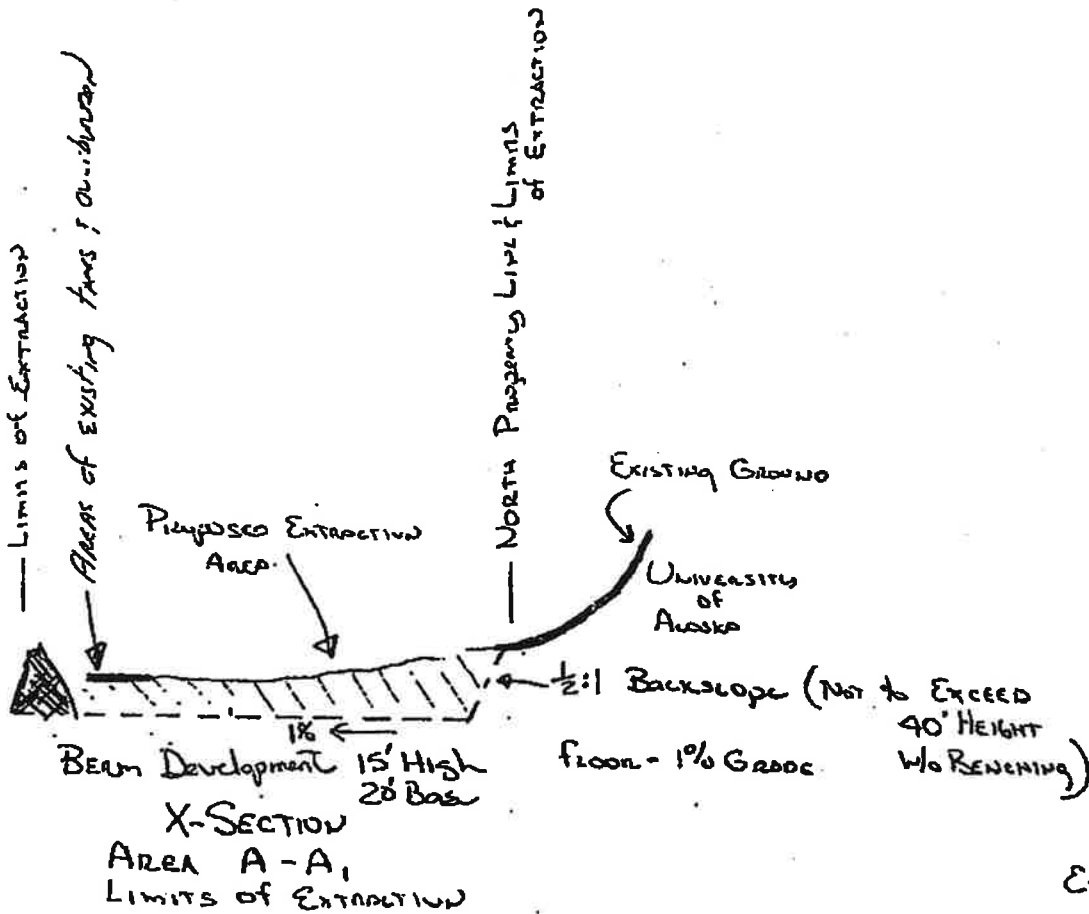 Limits of Extraction
Areas of existing
North Property Line & Limits
of Extraction
Existing Ground
Proposed Extraction
Area
University
of
Alaska
½:1 Backslope (Not to Exceed
40' Height
w/o Benching)
1%
Berm Development 15' High
20' Base
floor - 1% Grade
X-Section
Area A-A₁
Limits of Extraction